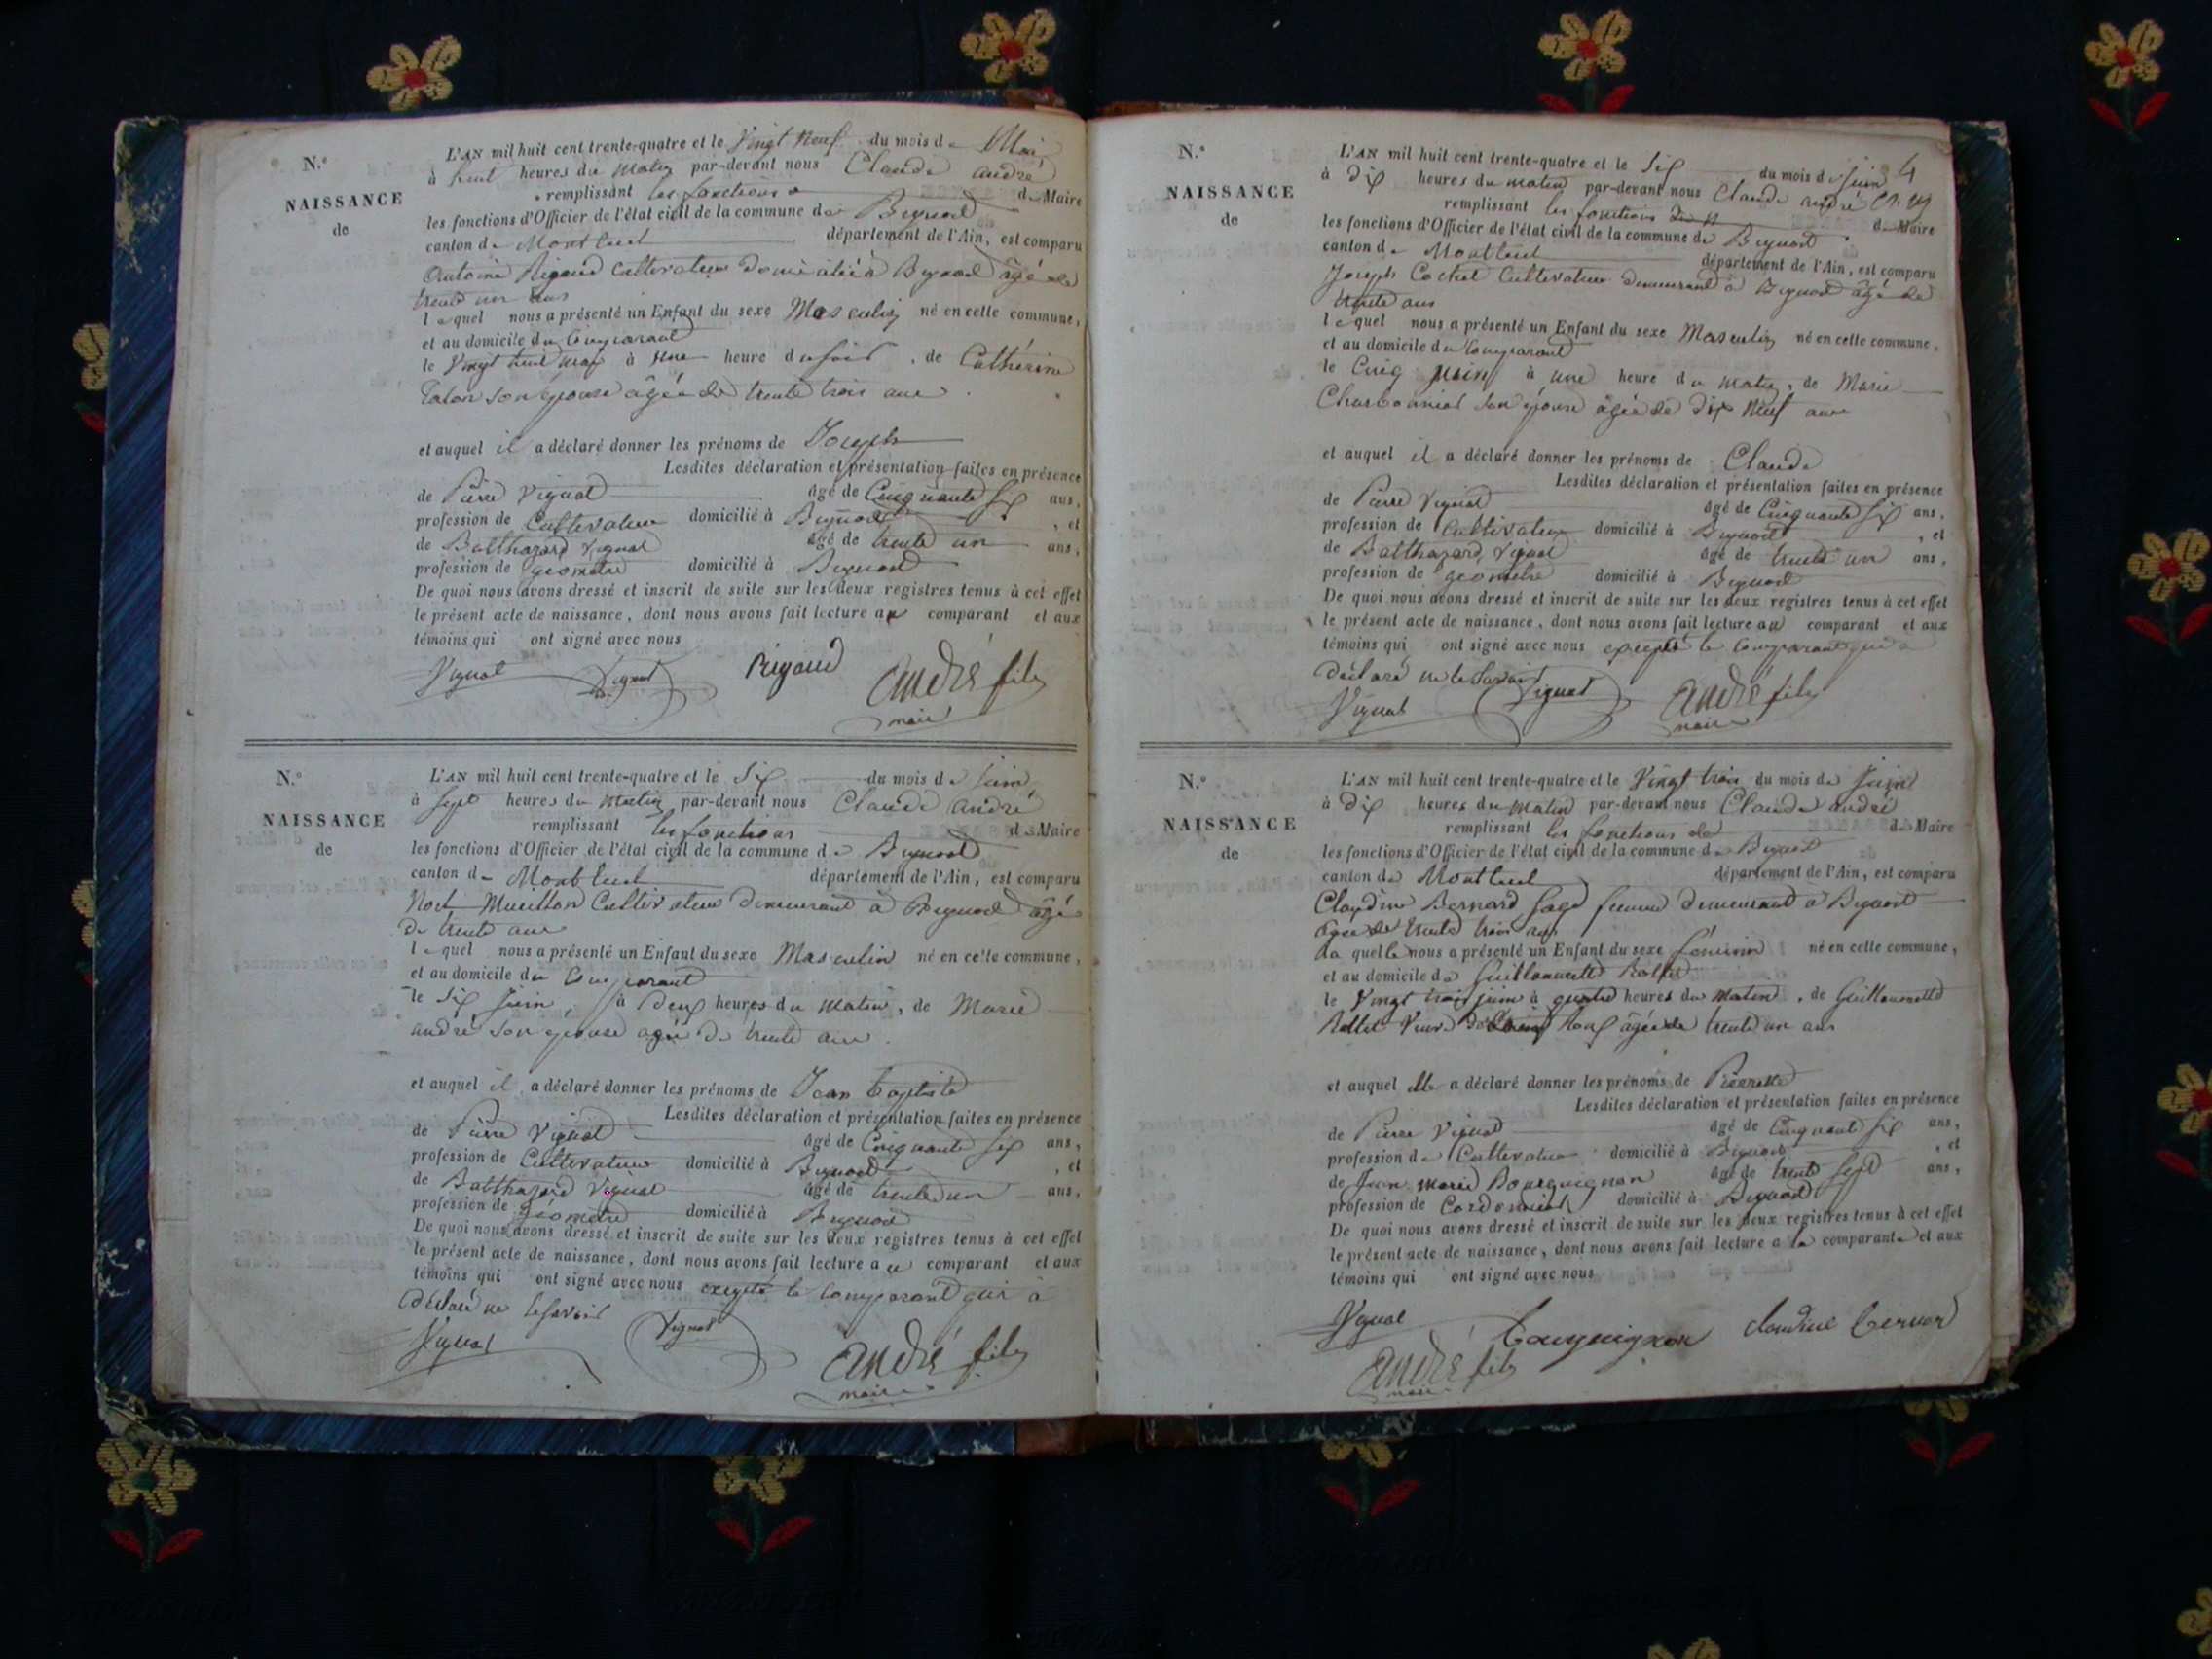 N.°
NAISSANCE
de
L'AN mil huit cent trente-quatre et le Vingt Neuf du mois de Mai
à huit heures du Matin par-devant nous Claude andré
remplissant les fonctions de Maire
les fonctions d'Officier de l'état civil de la commune de
canton de Montluel département de l'Ain, est comparu
Antoine Rigaud Cultivateur domicilié à âgé de
trente un ans
lequel nous a présenté un Enfant du sexe Masculin né en cette commune,
et au domicile du Comparant
le Vingt huit mai à une heure du soir, de Catherine
Talon son épouse âgée de trente trois ans
et auquel il a déclaré donner les prénoms de Joseph
Lesdites déclaration et présentation faites en présence
de Pierre Vignat âgé de Cinquante six ans,
profession de Cultivateur domicilié à , et
de Balthazard Vignat âgé de trente un ans,
profession de géomètre domicilié à
De quoi nous avons dressé et inscrit de suite sur les deux registres tenus à cet effet
le présent acte de naissance, dont nous avons fait lecture au comparant et aux
témoins qui ont signé avec nous
Vignat Vignat Rigaud andré fils
maire
N.°
NAISSANCE
de
L'AN mil huit cent trente-quatre et le Six du mois de Juin
à sept heures du Matin par-devant nous Claude andré
remplissant les fonctions de Maire
les fonctions d'Officier de l'état civil de la commune de
canton de Montluel département de l'Ain, est comparu
Cultivateur demeurant à âgé
de trente ans
lequel nous a présenté un Enfant du sexe Masculin né en cette commune,
et au domicile du Comparant
le Six Juin, à deux heures du matin, de Marie
andré son épouse agée de trente ans
et auquel il a déclaré donner les prénoms de Jean baptiste
Lesdites déclaration et présentation faites en présence
de Pierre Vignat âgé de Cinquante six ans,
profession de Cultivateur domicilié à , et
de Balthazard Vignat âgé de trente un ans,
profession de géomètre domicilié à
De quoi nous avons dressé et inscrit de suite sur les deux registres tenus à cet effet
le présent acte de naissance, dont nous avons fait lecture au comparant et aux
témoins qui ont signé avec nous excepté le Comparant qui a
déclaré ne le savoir
Vignat Vignat andré fils
maire
4
N.°
NAISSANCE
de
L'AN mil huit cent trente-quatre et le Six du mois de Juin
à dix heures du matin par-devant nous Claude andré
remplissant les fonctions de Maire
les fonctions d'Officier de l'état civil de la commune de
canton de Montluel département de l'Ain, est comparu
Joseph Cochet Cultivateur demeurant à âgé de
trente ans
lequel nous a présenté un Enfant du sexe Masculin né en cette commune,
et au domicile du Comparant
le Cinq juin à une heure du matin, de Marie
son épouse âgée de dix Neuf ans
et auquel il a déclaré donner les prénoms de Claude
Lesdites déclaration et présentation faites en présence
de Pierre Vignat âgé de Cinquante six ans,
profession de Cultivateur domicilié à , et
de Balthazard Vignat âgé de trente un ans,
profession de géomètre domicilié à
De quoi nous avons dressé et inscrit de suite sur les deux registres tenus à cet effet
le présent acte de naissance, dont nous avons fait lecture au comparant et aux
témoins qui ont signé avec nous excepté le Comparant qui a
déclaré ne le savoir
Vignat Vignat andré fils
maire
N.°
NAISSANCE
de
L'AN mil huit cent trente-quatre et le Vingt trois du mois de Juin
à dix heures du matin par-devant nous Claude andré
remplissant les fonctions de de Maire
les fonctions d'Officier de l'état civil de la commune de
canton de Montluel département de l'Ain, est comparu
Claudine Bernard Sage femme demeurant à
âgée de trente trois ans
laquelle nous a présenté un Enfant du sexe féminin né en cette commune,
et au domicile de Guillaumette Rollet
le Vingt trois juin à quatre heures du matin, de Guillaumette
Rollet Veuve âgée de trente un ans
et auquel elle a déclaré donner les prénoms de Pierrette
Lesdites déclaration et présentation faites en présence
de Pierre Vignat âgé de Cinquante six ans,
profession de Cultivateur domicilié à , et
de Jean Marie Bourguignon âgé de trente sept ans,
profession de Cordonnier domicilié à
De quoi nous avons dressé et inscrit de suite sur les deux registres tenus à cet effet
le présent acte de naissance, dont nous avons fait lecture a la comparante et aux
témoins qui ont signé avec nous
Vignat bourguignon claudine bernar
andré fils
maire